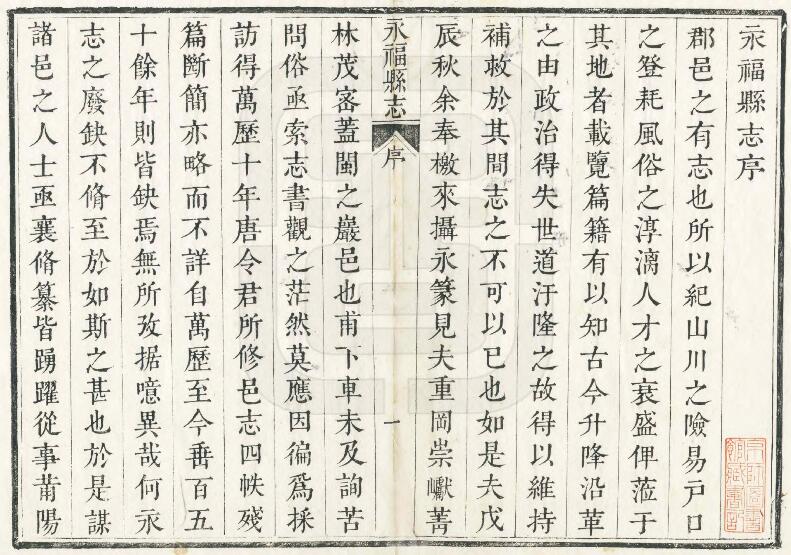 永福縣志序
郡邑之有志也所以紀山川之險易戸口
之登耗風俗之淳漓人才之衰盛俾蒞于
其地者載覽篇籍有以知古今升降沿革
之由政治得失世道汙隆之故得以維持
補救於其間志之不可以已也如是夫戊
辰秋余奉檄來攝永篆見夫重岡崇巘菁
永福縣志
序
一
林茂宻蓋閩之巖邑也甫下車未及詢苦
問俗亟索志書觀之茫然莫應因徧爲採
訪得萬歷十年唐令君所修邑志四帙殘
篇斷簡亦略而不詳自萬歷至今垂百五
十餘年則皆缺焉無所攷据噫異哉何永
志之廢缺不脩至於如斯之甚也於是謀
諸邑之人士亟襄脩纂皆踴躍從事莆陽